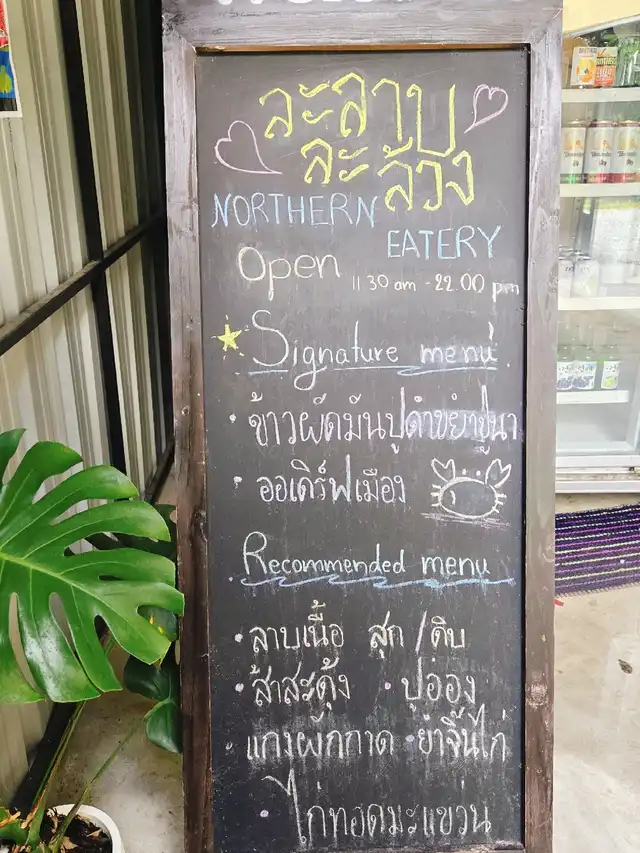 ละลาบ
ละล้วง
NORTHERN
EATERY
Open 11 30 am - 22.00 pm
Signature menu
• ข้าวผัดมันปูดำขยำปูนา
• ออเดิร์ฟเมือง
Recommended menu
• ลาบเนื้อ สุก / ดิบ
• ส้าสะดุ้ง • ปูอ่อง
• แกงผักกาด • ยำจิ๊นไก่
• ไก่ทอดมะแขว่น